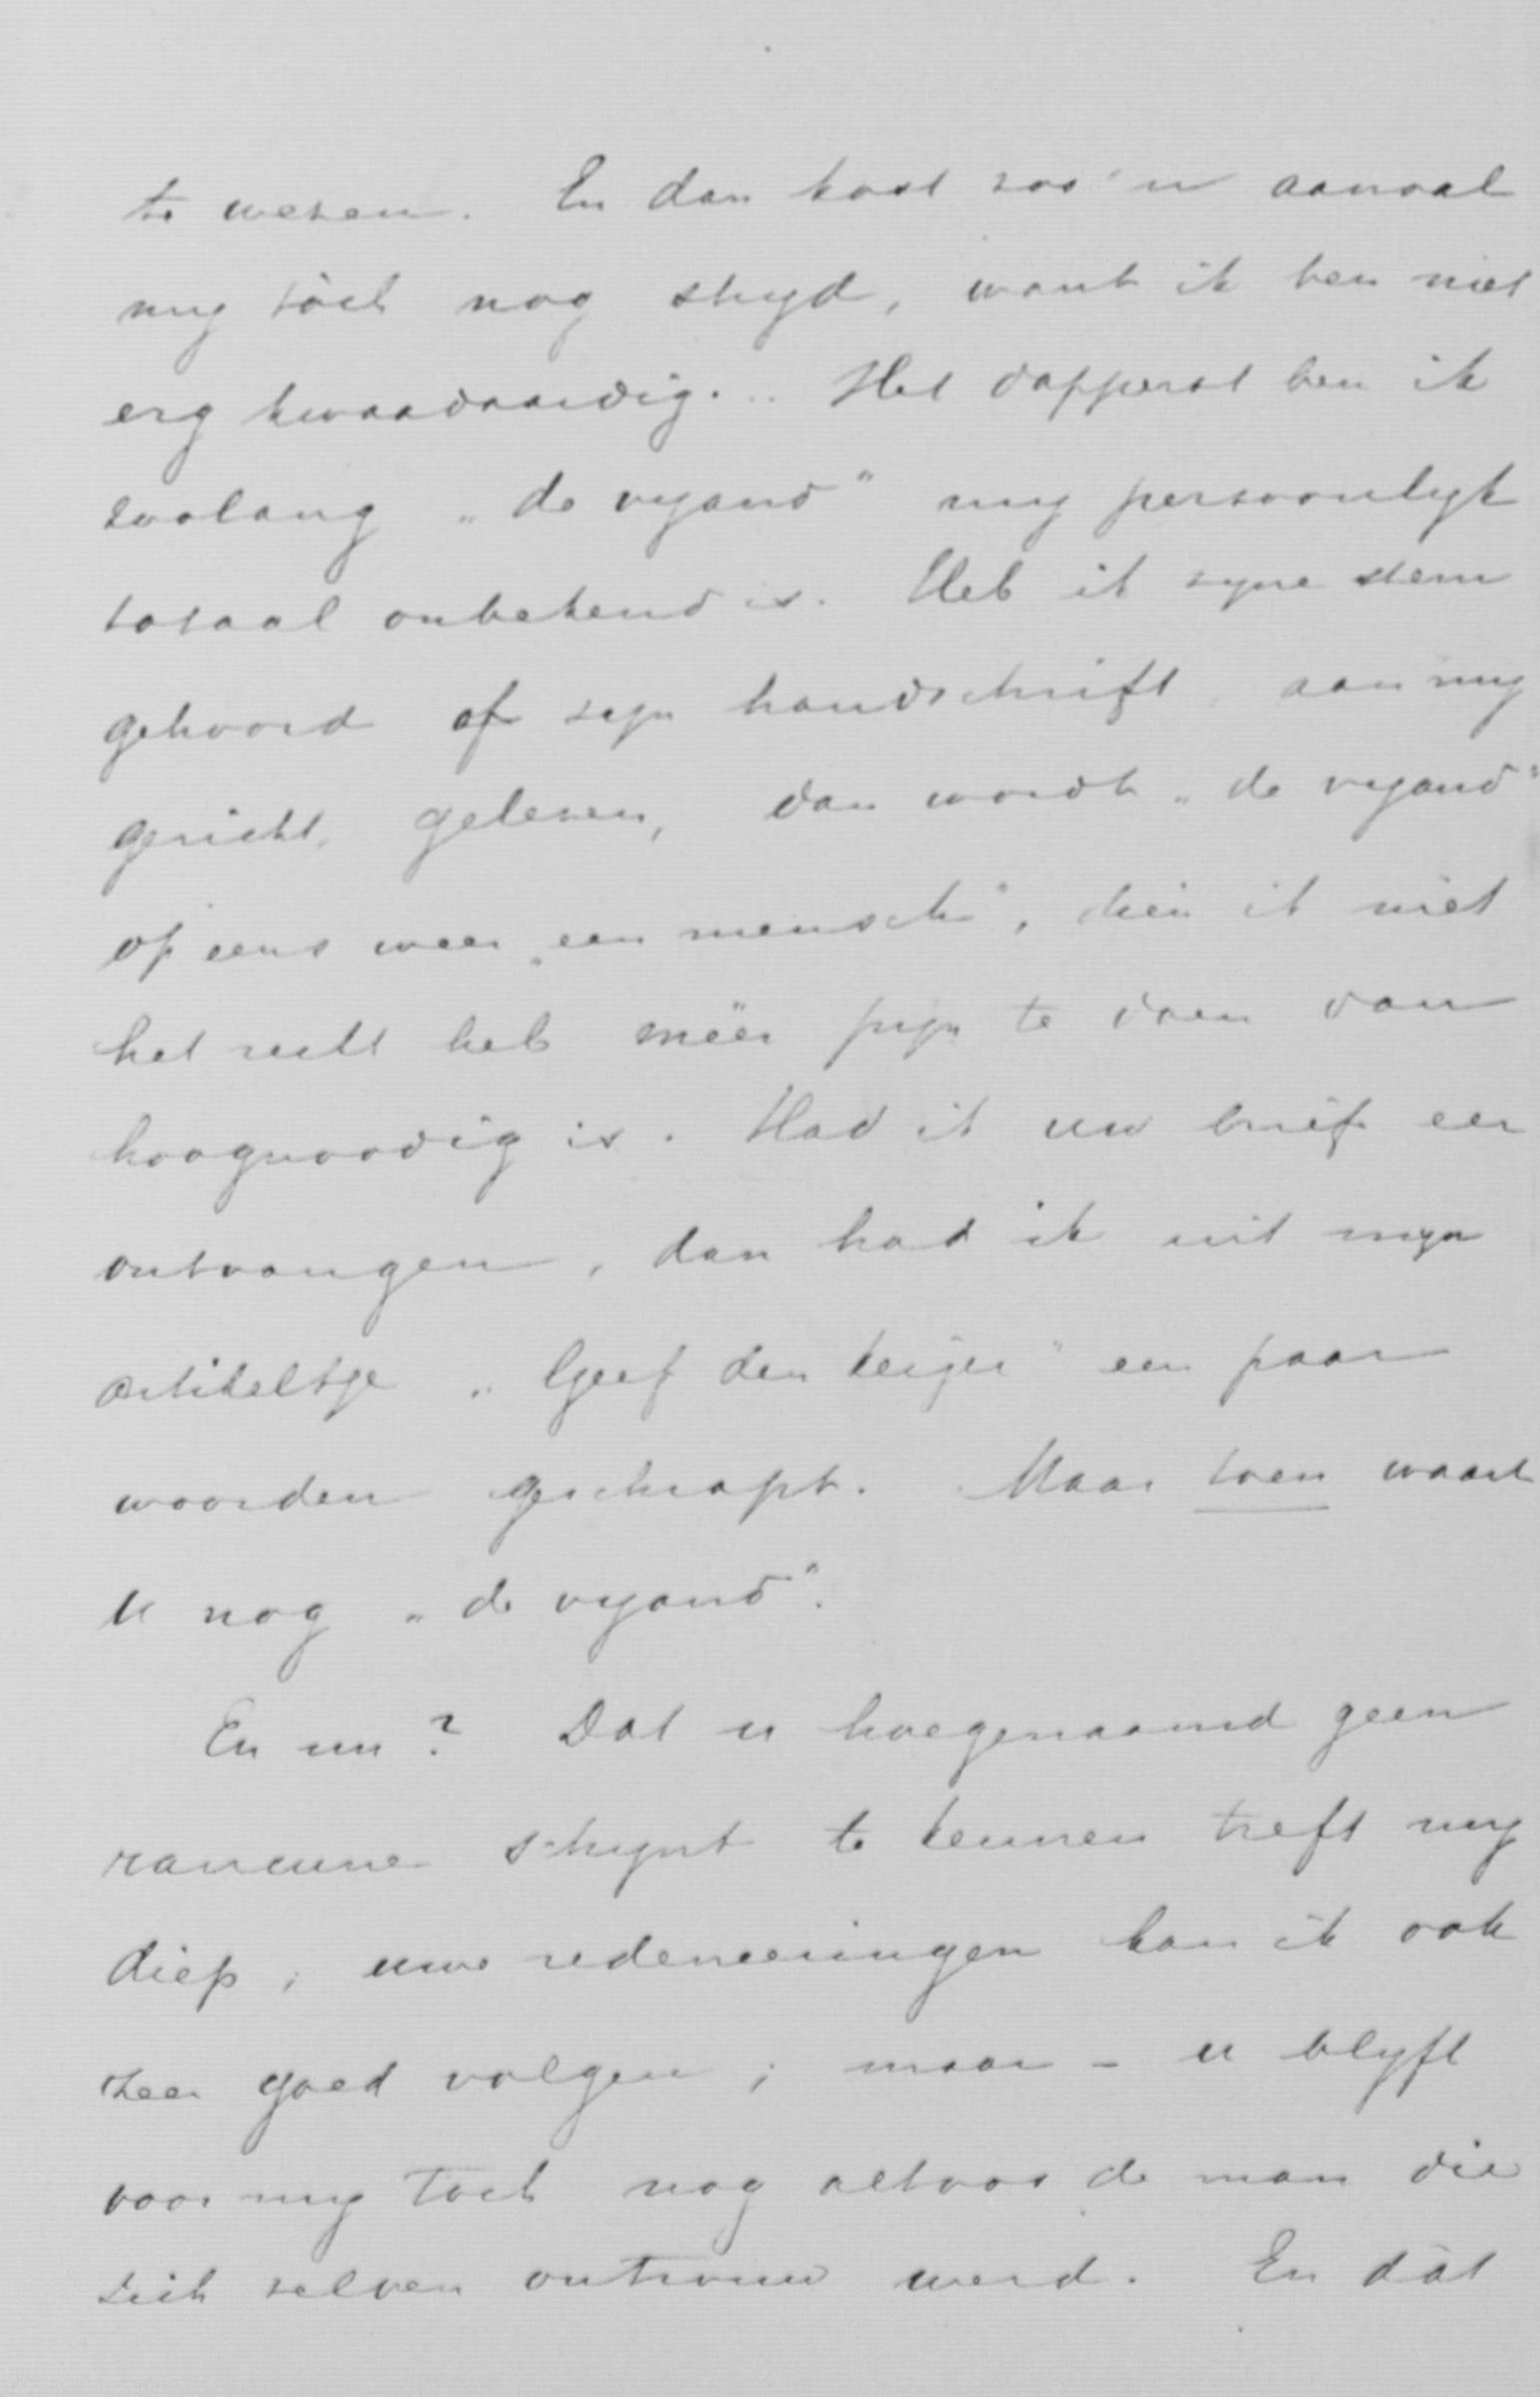 te wezen. En dan kost zoo'n aanval
my tòch nog stryd, want ik ben niet
erg kwaadaardig... Het dapperst ben ik
zoolang „de vyand" my persoonlyk
totaal onbekend is. Heb ik zyne stem
gehoord of zyn handschrift, aan my
gericht, gelezen, dan wordt „de vyand"
op eens weer „een mensch", dien ik niet
het recht heb méér pyn te doen dan
hoognoodig is. Had ik uw brief eer
ontvangen, dan had ik uit myn
artikeltje „Geef den keizer" een paar
woorden geschrapt. Maar toen waart
U nog „de vyand".
En nu? Dat u hoegenaamd geen
rancune schynt te kennen treft my
diep; uwe redeneeringen kan ik ook
zeer goed volgen; maar - u blyft
voor my toch nog altoos de man die
zich zelven ontrouw werd. En dàt